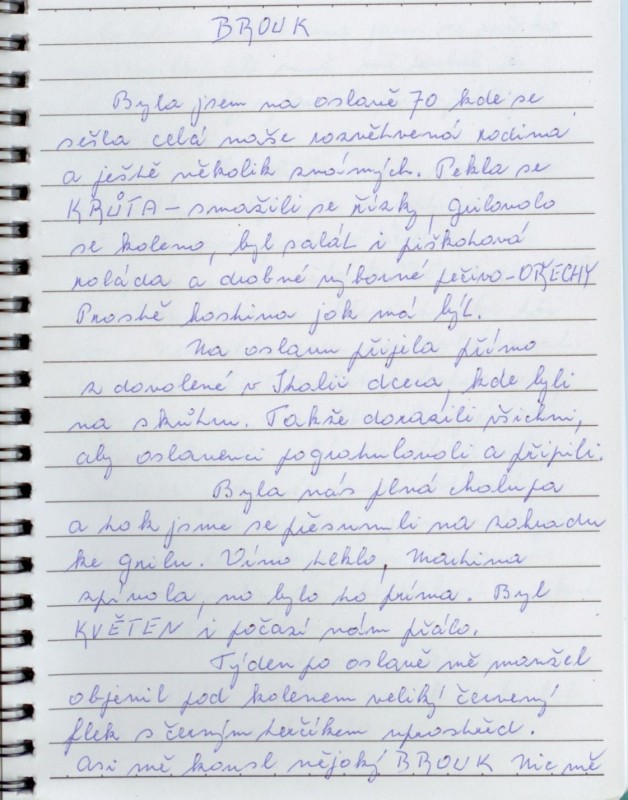 BROUK
Byla jsem na oslavě 70 kde se
sešla celá naše rozvětvená rodina
a ještě několik známých. Pekla se
KRŮTA – smažili se řízky, grilovalo
se koleno, byl salát i piškotová
roláda a drobné výborné pečivo – OŘECHY
Prostě hostina jak má být.
Na oslavu přijela přímo
z dovolené v Itálii dcera, kde byli
na skútru. Takže dorazili všichni,
aby oslavenci pogratulovali a připili.
Byla nás plná chalupa
a tak jsme se přesunuli na zahradu
ke grilu. Víno teklo, mašina
zpívala, no bylo to príma. Byl
KVĚTEN i počasí nám přálo.
Týden po oslavě mě manžel
objevil pod kolenem veliký červený
flek s černým terčíkem uprostřed.
Asi mě kousl nějaký BROUK Nic mě